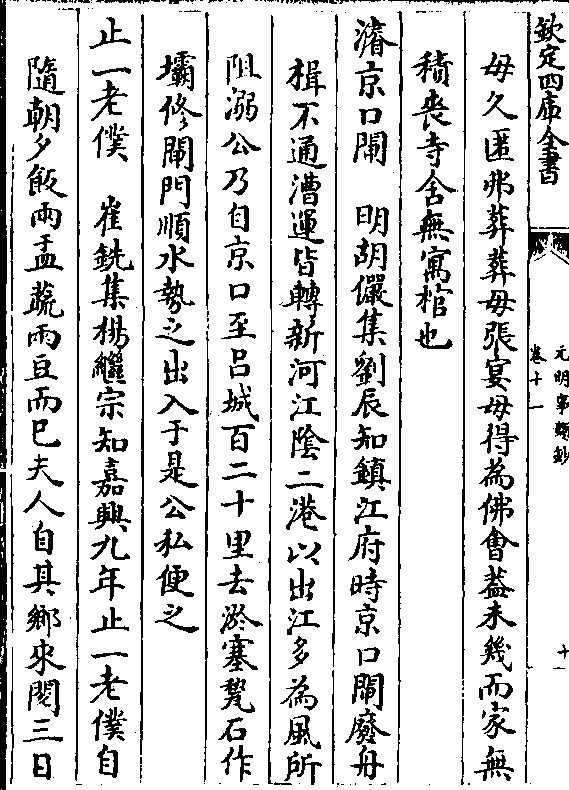 欽定四庫全書
元明事類鈔
卷十一
十
毋久匿弗葬葬毋張宴毋得為佛會葢未幾而家無
積喪寺舍無寓棺也
濬京口閘　明胡儼集劉辰知鎮江府時京口閘廢舟
楫不通漕運皆轉新河江陰二港以出江多為風所
阻溺公乃自京口至吕城百二十里去淤塞甃石作
壩修閘門順水勢之出入于是公私便之
止一老僕　崔銑集楊繼宗知嘉興九年止一老僕自
隨朝夕飯兩盂蔬兩豆而已夫人自其鄉來閱三日